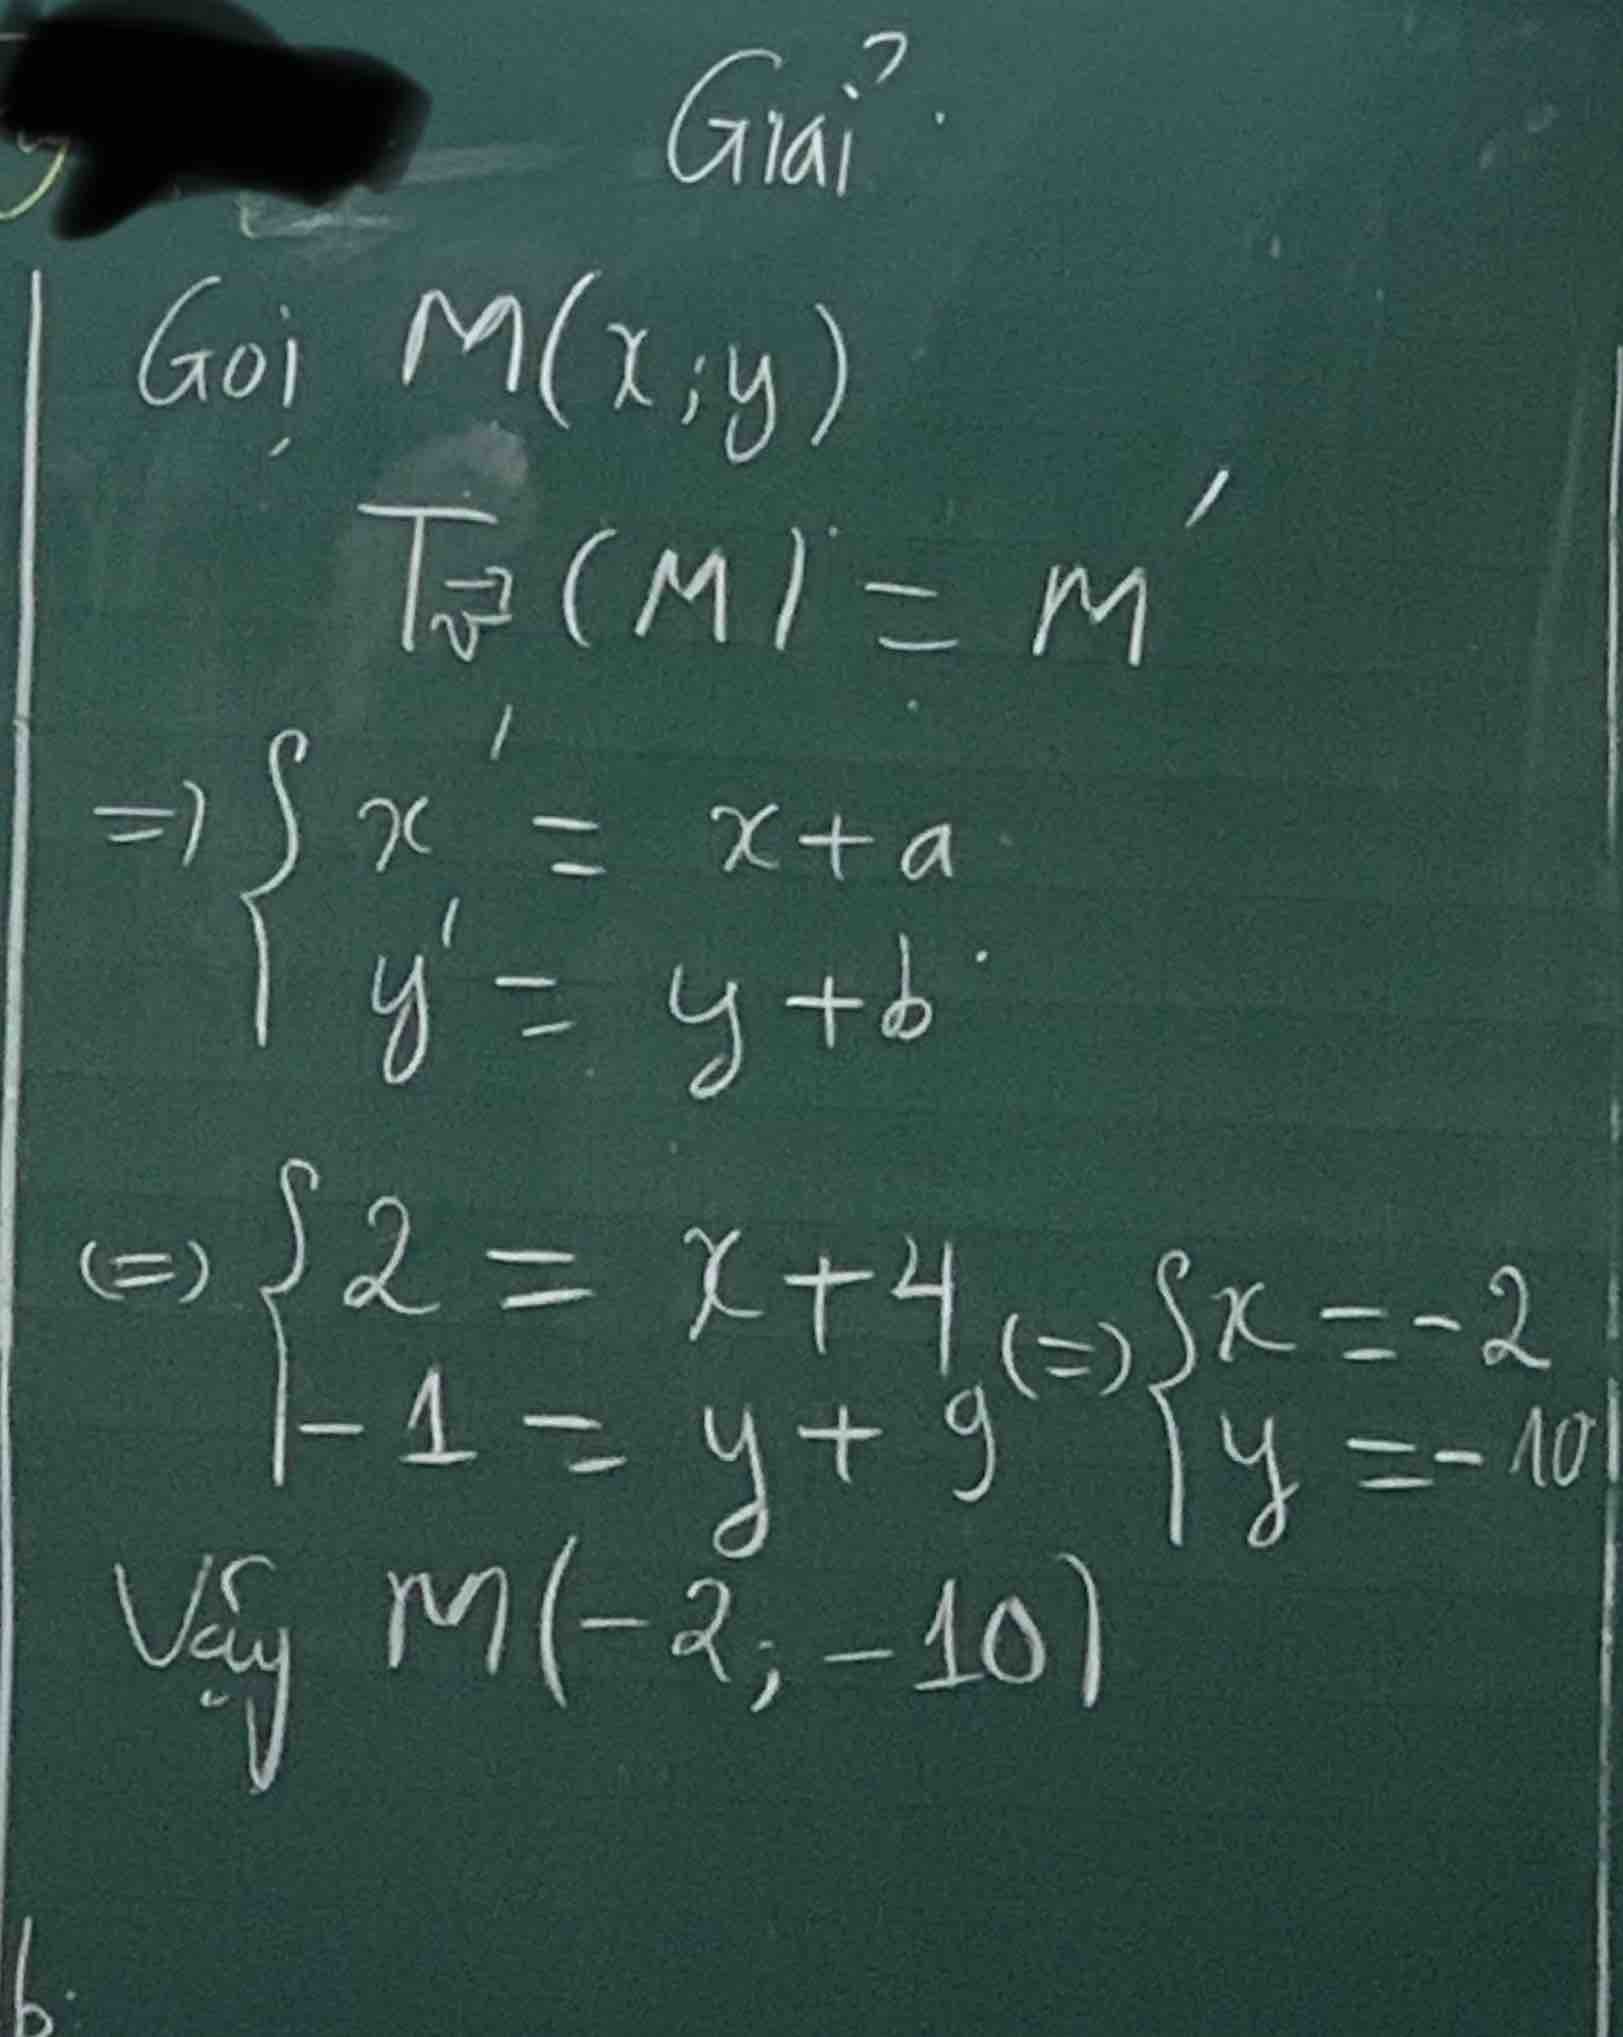 Giải
Gọi M(x;y)
T_v⃗ (M) = M'
=> { x' = x + a
y' = y + b
(=) { 2 = x + 4 (=) { x = -2
-1 = y + 9 y = -10
Vậy M(-2; -10)
b.